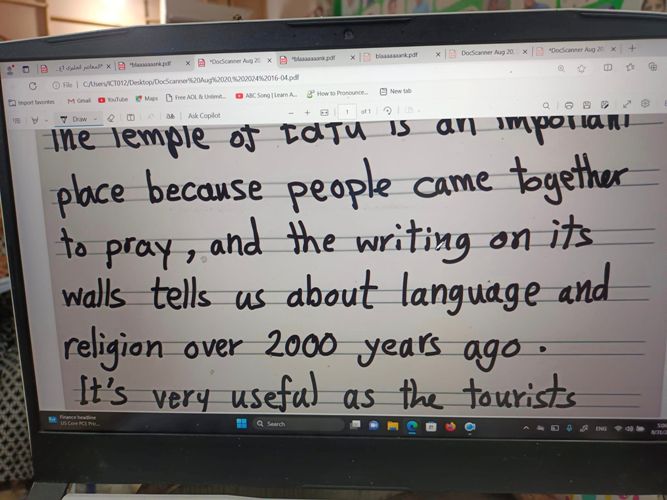 *blaaaaaank.pdf
*DocScanner Aug 20
*blaaaaaank.pdf
blaaaaaank.pdf
DocScanner Aug 20,
*DocScanner Aug 20
File | C:/Users/ICT012/Desktop/DocScanner%20Aug%2020,%202024%2016-04.pdf
Import favorites Gmail YouTube Maps Free AOL & Unlimit... ABC Song | Learn A... How to Pronounce... New tab
Draw Ask Copilot 1 of 1
The Temple of Edfu is an important
place because people came together
to pray, and the writing on its
walls tells us about language and
religion over 2000 years ago.
It's very useful as the tourists
Finance headline
US Core PCE Pric...
Search
ENG